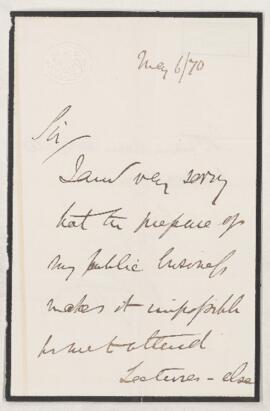 May 6/70
Sir/
I am very sorry
that the pressure of
my public business
makes it impossible
for me to attend
Lectures - else